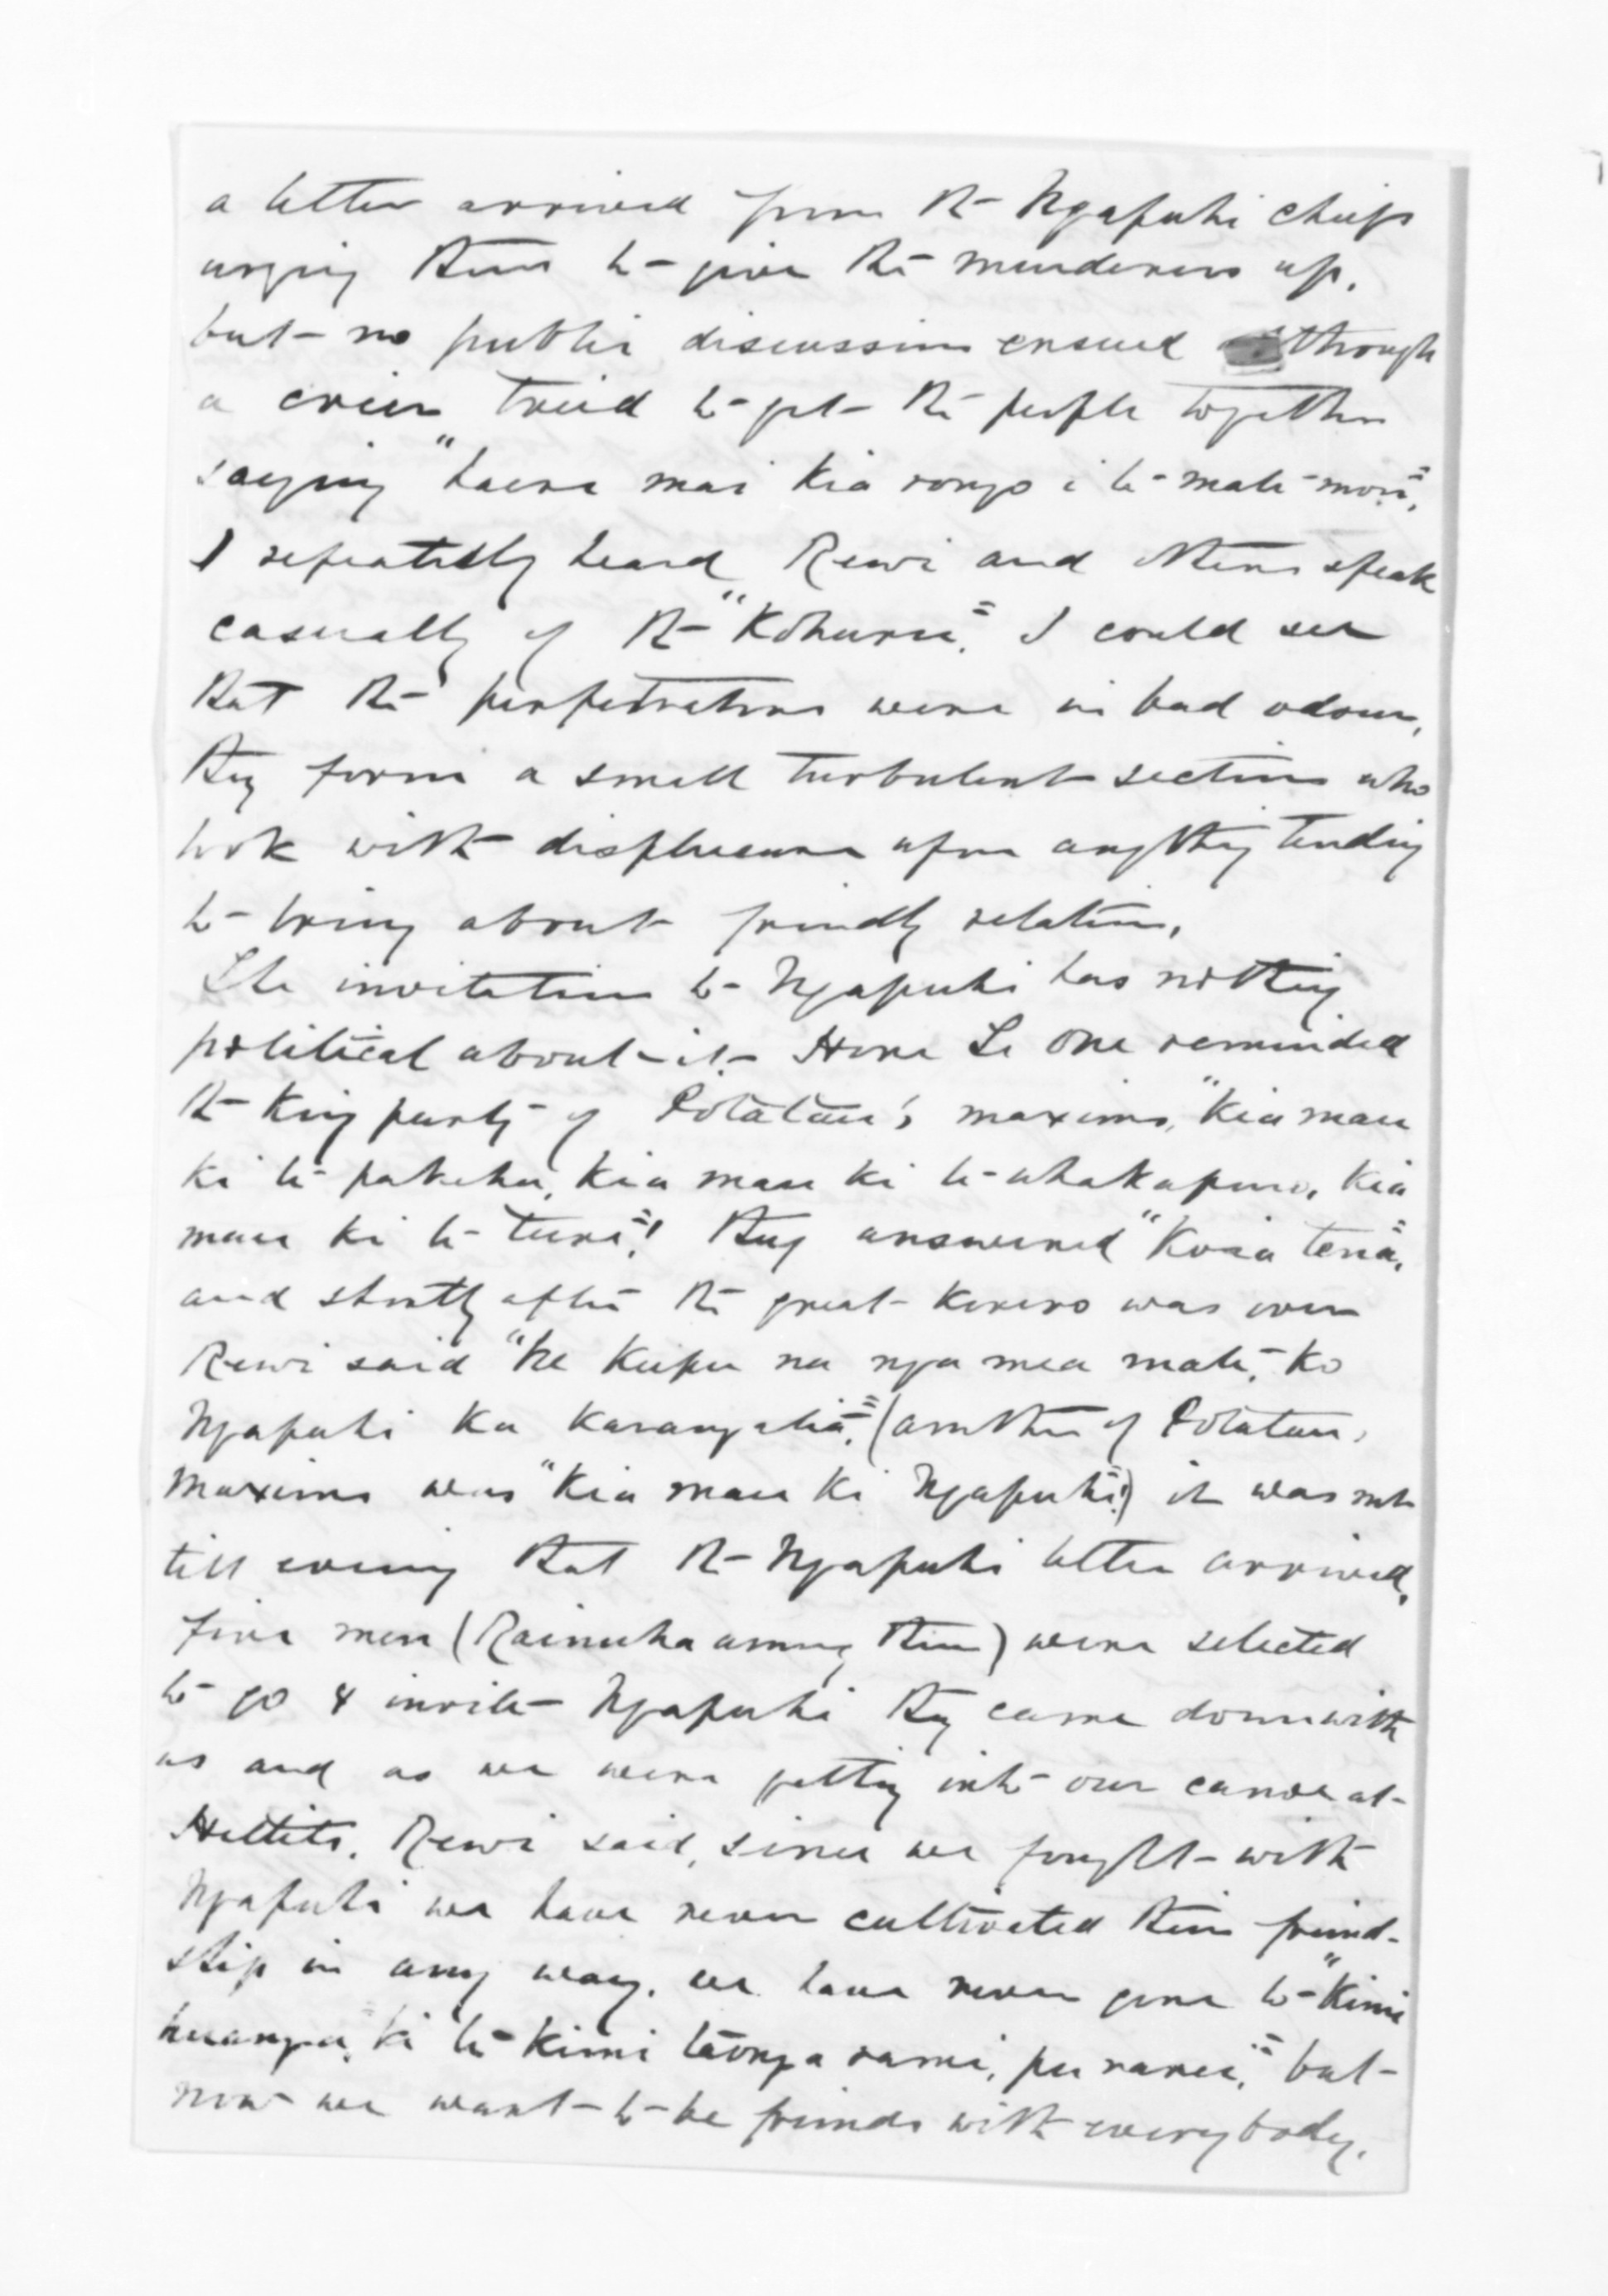 a letter arrived from the Ngapuhi chiefs
urging them to give the murderers up,
but no public discussion ensued although
a crier tried to get the people together
saying "haere mai kia rongo i te mate mou".
I repeatedly heard Rewi and others speak
casually of the "Kohuru". I could see
that the perpetrators were in bad odour,
they form a small turbulent section who
look with displeasure upon anything tending
to bring about friendly relations,
The invitation to Ngapuhi has nothing
political about it. Hone Te One reminded
the King party of Potatau's maxims, "Kia mau
ki te pakeha, kia mau ki te whakapono, kia
mau ki te ture"! They answered "Koia tena",
and shortly after the great korero was over
Rewi said "he kupu na nga mea mate, ko
Ngapuhi ka karangatia", (another of Potatau,
maxims was "kia mau ki Ngapuhi"!) it was not
till evening that the Ngapuhi letter arrived,
five men (Rainuha among them) were selected
to go & invite Ngapuhi they came down with
us and as we were getting into our canoe at
Hettits. Rewi said, since we fought with
Ngapuhi we have never cultivated their friend-
ship in any way, we have never gone to "Kimi
huanga," ki te kimi taonga rami, pu ranei," but
now we want to be friends with everybody.